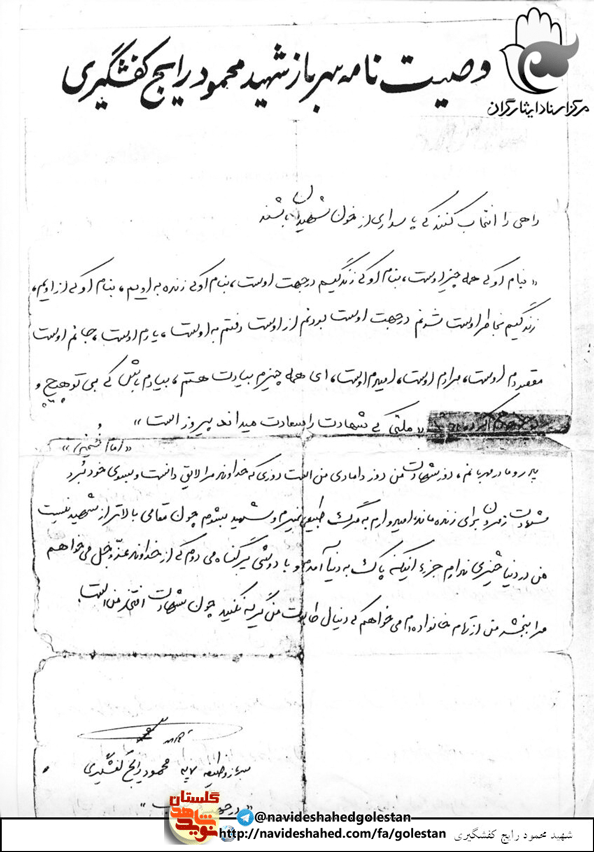 وصیت نامه سرباز شهید محمود رایج کفشگیری
مرکز اسناد ایثارگران
راهی را انتخاب کنند که پاسداری از خون شهیدان باشند
« بنام او که همه چیز اوست، بنام او که زندگیم در جهت اوست، بنام او که زنده به اویم، بنام او که از اویم،
زندگیم بخاطر اوست شدنم در جهت اوست بودنم از اوست رفتنم به اوست، یارم اوست، جانم اوست
مقصودم اوست، مرادم اوست، امیدم اوست، ای همه چیزم بیادت هستم، بیادم باش که بی تو هیچ و
« ملتی که شهادت را سعادت میداند پیروز است »
« امام خمینی »
پدر و مادر مهربانم، روز شهادت من روز دامادی من است روزی که خداوند مرا لایق دانست و بسوی خود برد
برای زنده ماندن امیدوارم به مرگ طبیعی نمیرم و شهید بشوم چون مقامی بالاتر از شهید نیست
من در دنیا چیزی ندارم جزء اینکه پاک به دنیا آمدم و با دوشی پر گناه می روم که از خداوند عزوجل می خواهم
مرا ببخشد من از تمام خانواده ام می خواهم که دنبال تابوت من گریه نکنید چون شهادت افتخار من است
سرباز وظیفه محمود رایج کفشگیری
گلستان
نوید شاهد
@navideshahedgolestan
http://navideshahed.com/fa/golestan
شهید محمود رایج کفشگیری